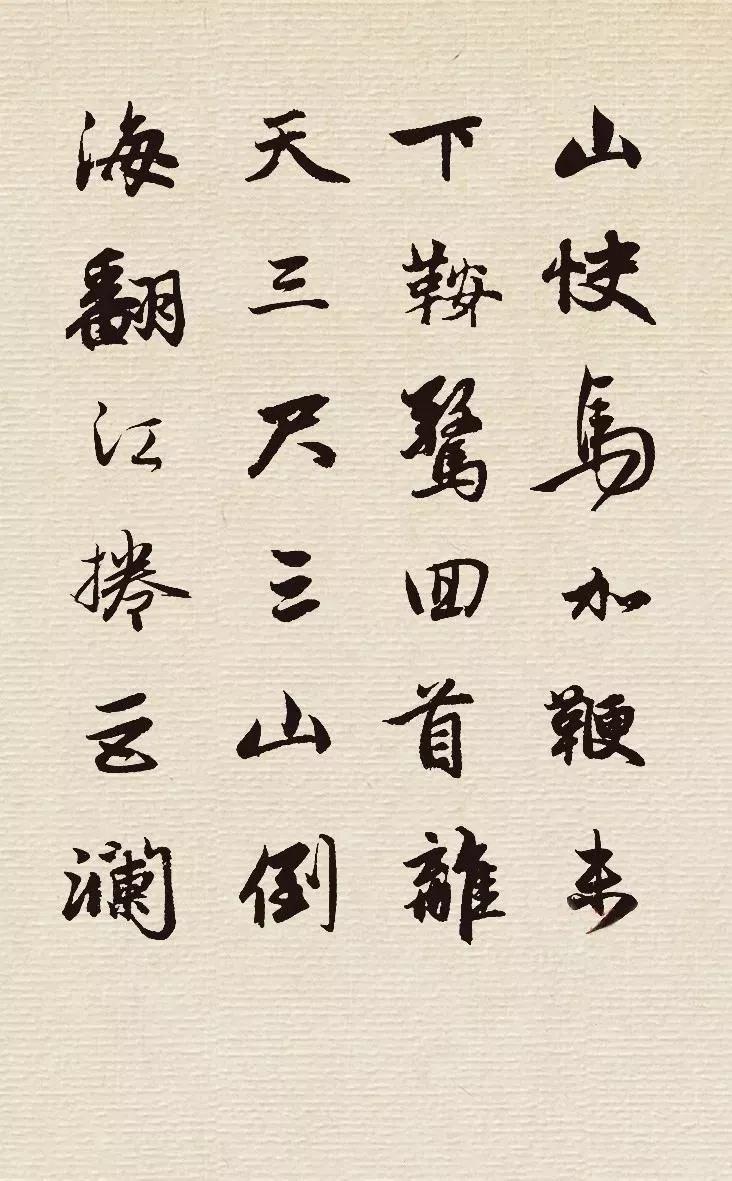 山快馬加鞭未
下鞍驚回首離
天三尺三山倒
海翻江捲巨瀾